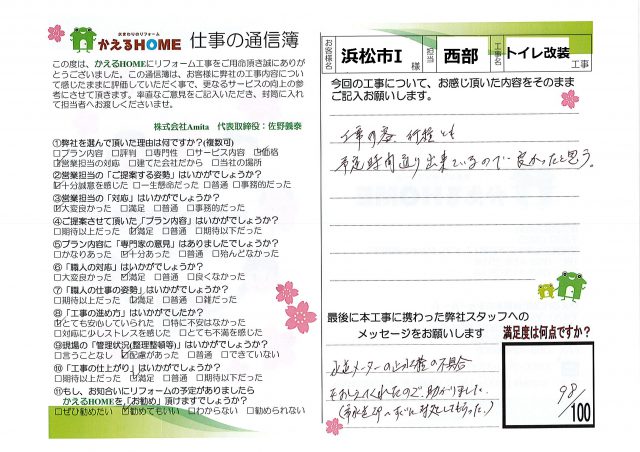 水まわりのリフォーム
かえるHOME 仕事の通信簿
この度は、かえるHOMEにリフォーム工事をご用命頂き誠にありが
とうございました。この通信簿は、お客様に弊社の工事内容につい
て感じたままに評価していただく事で、更なるサービスの向上の参
考にさせて頂きます。率直なご意見をご記入いただき、封筒に入れ
て担当者へお渡しくださいませ。
株式会社Amita 代表取締役：佐野義泰
①弊社を選んで頂いた理由は何ですか?(複数可)
□プラン内容 □評判 □専門性 □サービス内容 ☑価格
☑営業担当の対応 □建てた会社だから □当社の場所
②営業担当の「ご提案する姿勢」はいかがでしょうか?
☑十分誠意を感じた □一生懸命だった □普通 □事務的だった
③営業担当の「対応」はいかがでしょうか?
☑大変良かった □満足 □普通 □事務的だった
④ご提案させて頂いた「プラン内容」はいかがでしょうか?
□期待以上だった ☑満足 □普通 □期待以下だった
⑤プラン内容に「専門家の意見」はありましたでしょうか?
□かなりあった ☑十分あった □普通 □殆んどなかった
⑥「職人の対応」はいかがでしょうか?
□大変良かった ☑満足 □普通 □良くなかった
⑦「職人の仕事の姿勢」はいかがでしょうか?
□期待以上だった ☑満足 □普通 □雑だった
⑧「工事の進め方」はいかがでしたか?
☑とても安心していられた □特に不安はなかった
□対応に少しストレスを感じた □とても不満を感じた
⑨現場の「管理状況(整理整頓等)」はいかがでしょうか?
□言うことなし ☑配慮があった □普通 □できていない
⑩「工事の仕上がり」はいかがでしょうか?
□期待以上だった ☑満足 □普通 □期待以下だった
⑪もし、お知合いにリフォームの予定がありましたら
かえるHOMEを、「お勧め」頂けますでしょうか?
□ぜひ勧めたい ☑勧めてもいい □わからない □勧められない
お客様名 浜松市I 様 担当 西部 工事名 トイレ改装 工事
今回の工事について、お感じ頂いた内容をそのまま
ご記入お願いします。
工事の内容、行程とも
予定時間通り出来ているので良かったと思う。
最後に本工事に携わった弊社スタッフへの
メッセージをお願いします
満足度は何点ですか?
水道メーターの止水栓の不具合
をおしえてくれたので、助かりました。
98/100